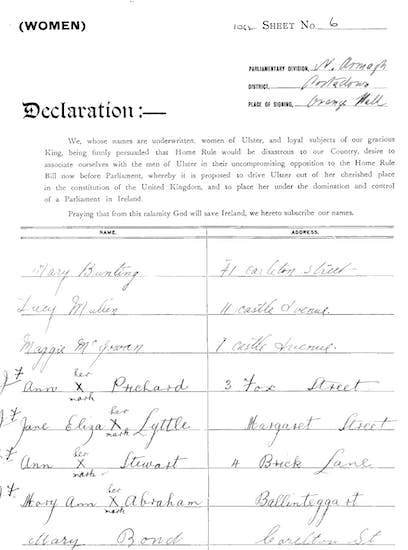 (WOMEN)
1062 SHEET No. 6
PARLIAMENTARY DIVISION, N. Armagh
DISTRICT, Portadown
PLACE OF SIGNING, Orange Hall
Declaration:—
We, whose names are underwritten, women of Ulster, and loyal subjects of our gracious
King, being firmly persuaded that Home Rule would be disastrous to our Country, desire to
associate ourselves with the men of Ulster in their uncompromising opposition to the Home Rule
Bill now before Parliament, whereby it is proposed to drive Ulster out of her cherished place
in the constitution of the United Kingdom, and to place her under the domination and control
of a Parliament in Ireland.
Praying that from this calamity God will save Ireland, we hereto subscribe our names.
NAME. ADDRESS.
Mary Bunting 71 Carleton Street
Lucy 11 Castle Avenue.
Maggie McGowan 1 Castle Avenue.
Ann her X mark Prichard 3 Fox Street
Jane Eliza her X mark Lyttle Margaret Street
Ann her X mark Stewart 4 Brick Lane
Mary Ann her X mark Abraham Ballinteggart
Mary Bond Carleton St